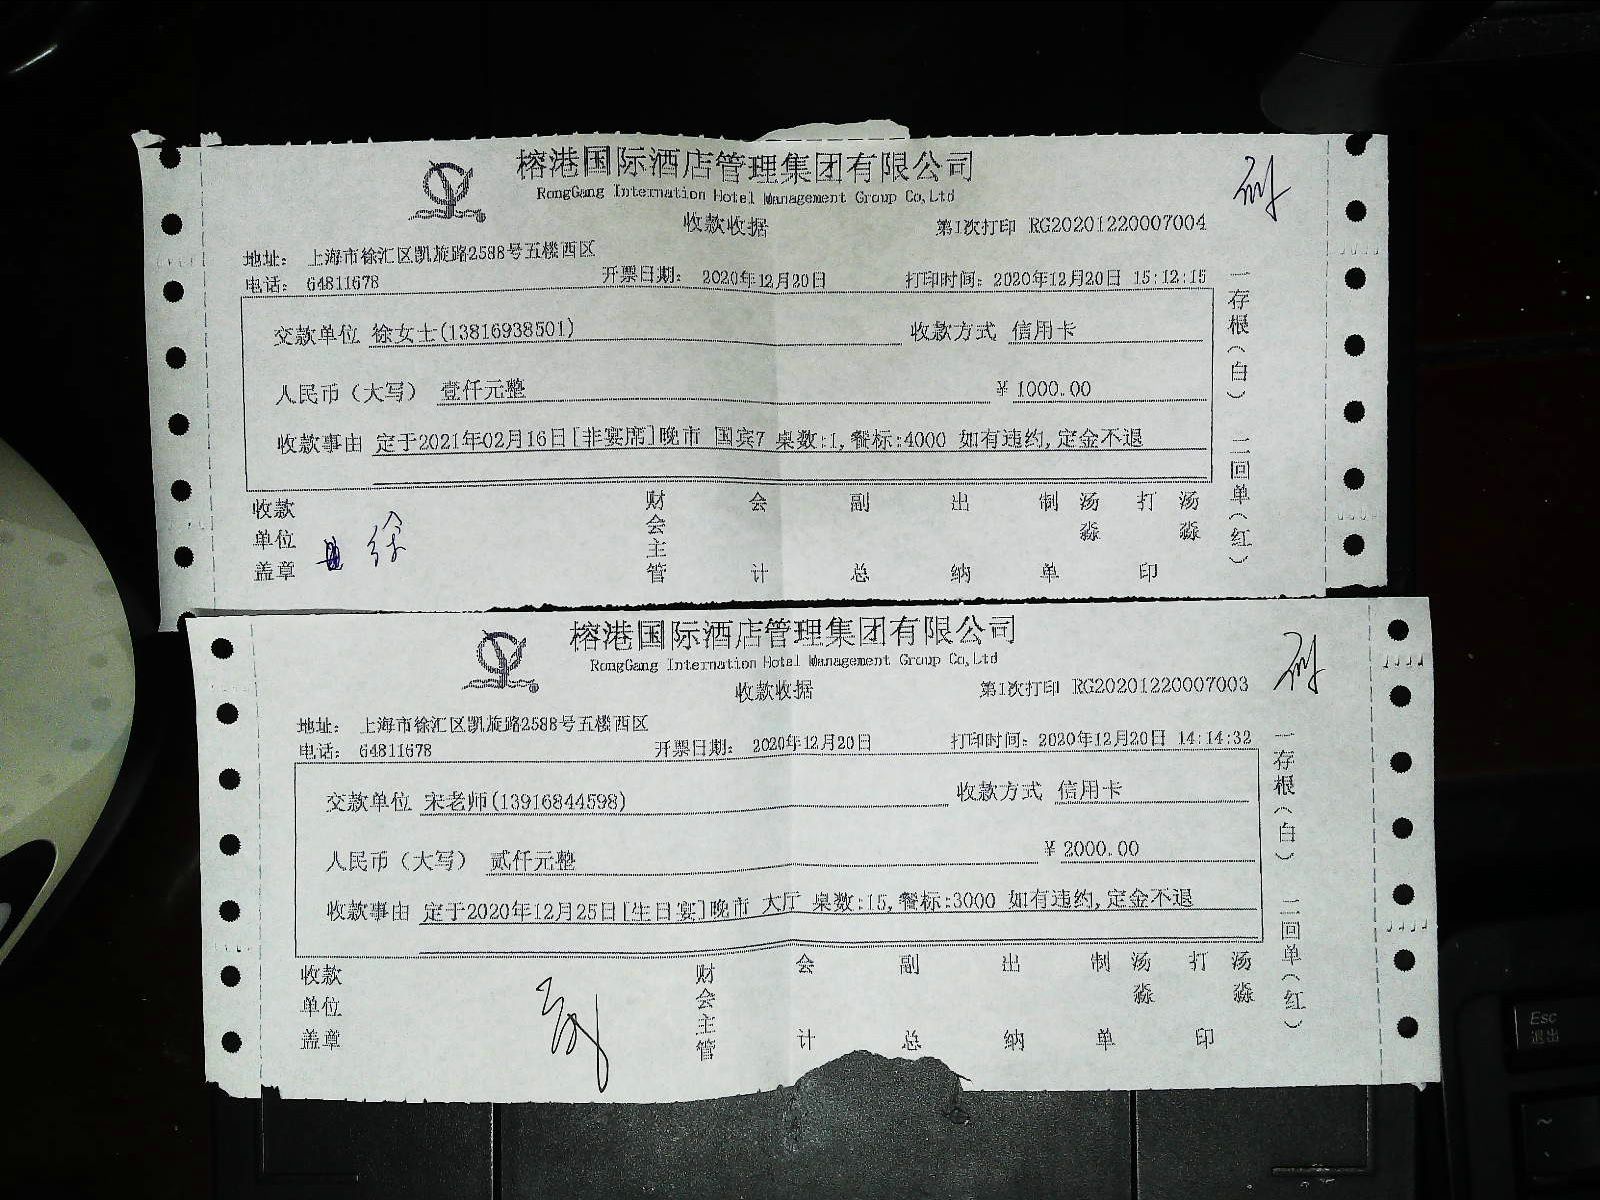 榕港国际酒店管理集团有限公司
RongGang Internation Hotel Management Group Co,Ltd
收款收据 第1次打印 RG20201220007004
地址: 上海市徐汇区凯旋路2588号五楼西区
电话: 64811678 开票日期: 2020年12月20日 打印时间: 2020年12月20日 15:12:15
交款单位 徐女士(13816938501) 收款方式 信用卡
人民币(大写) 壹仟元整 ¥ 1000.00
收款事由 定于2021年02月16日[非宴席]晚市 国宾7 桌数:1,餐标:4000 如有违约,定金不退
收款单位盖章 徐 财会主管 会计 副总 出纳 制单 汤淼 打印 汤淼
一存根(白) 二回单(红)
榕港国际酒店管理集团有限公司
RongGang Internation Hotel Management Group Co,Ltd
收款收据 第1次打印 RG20201220007003
地址: 上海市徐汇区凯旋路2588号五楼西区
电话: 64811678 开票日期: 2020年12月20日 打印时间: 2020年12月20日 14:14:32
交款单位 宋老师(13916844598) 收款方式 信用卡
人民币(大写) 贰仟元整 ¥ 2000.00
收款事由 定于2020年12月25日[生日宴]晚市 大厅 桌数:15,餐标:3000 如有违约,定金不退
收款单位盖章 财会主管 会计 副总 出纳 制单 汤淼 打印 汤淼
一存根(白) 二回单(红)
Esc
退出
~